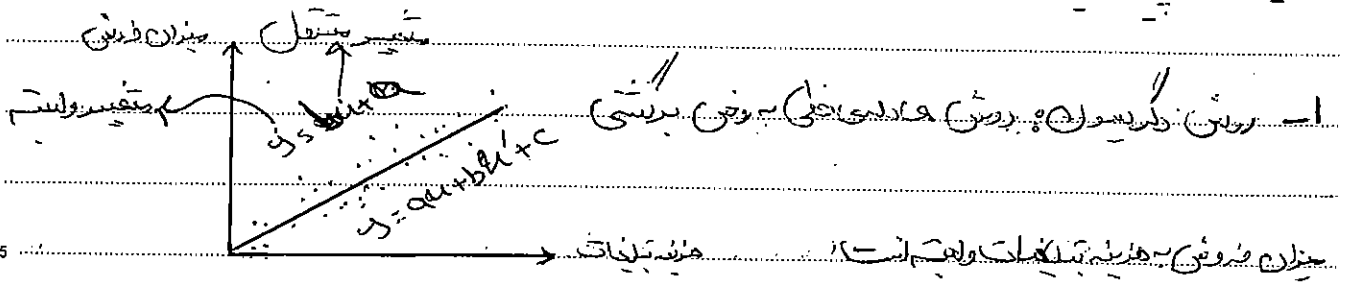 متغیر مستقل
میزان فروش
متغیر وابسته
y = ax + bx' + c
۱- روش رگرسیون: روش معادله‌ی خطی به روش برگشتی
هزینه تبلیغات
میزان فروش به هزینه تبلیغات وابسته است.
5